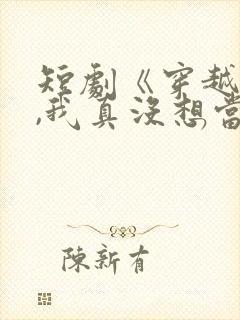 短劇《穿越
,我真沒想當
陳新有